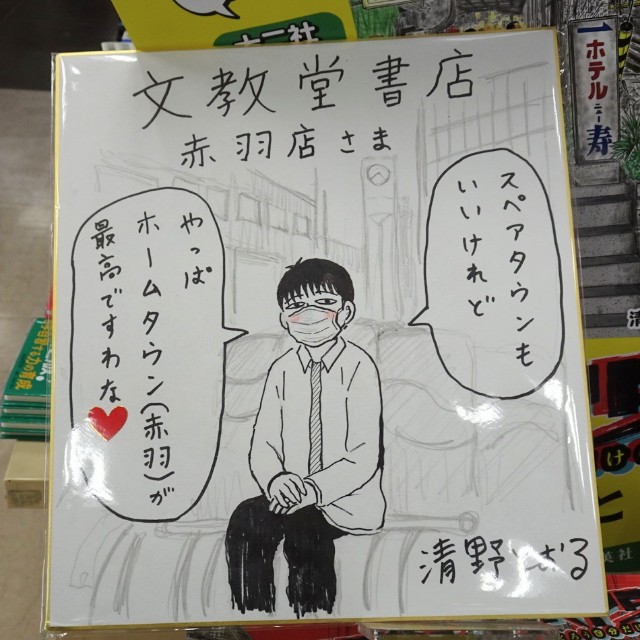 文教堂書店
赤羽店さま
スペアタウンも
いいけれど
やっぱ
ホームタウン(赤羽)が
最高ですわな
清野とおる
ホテル
ニュー
寿